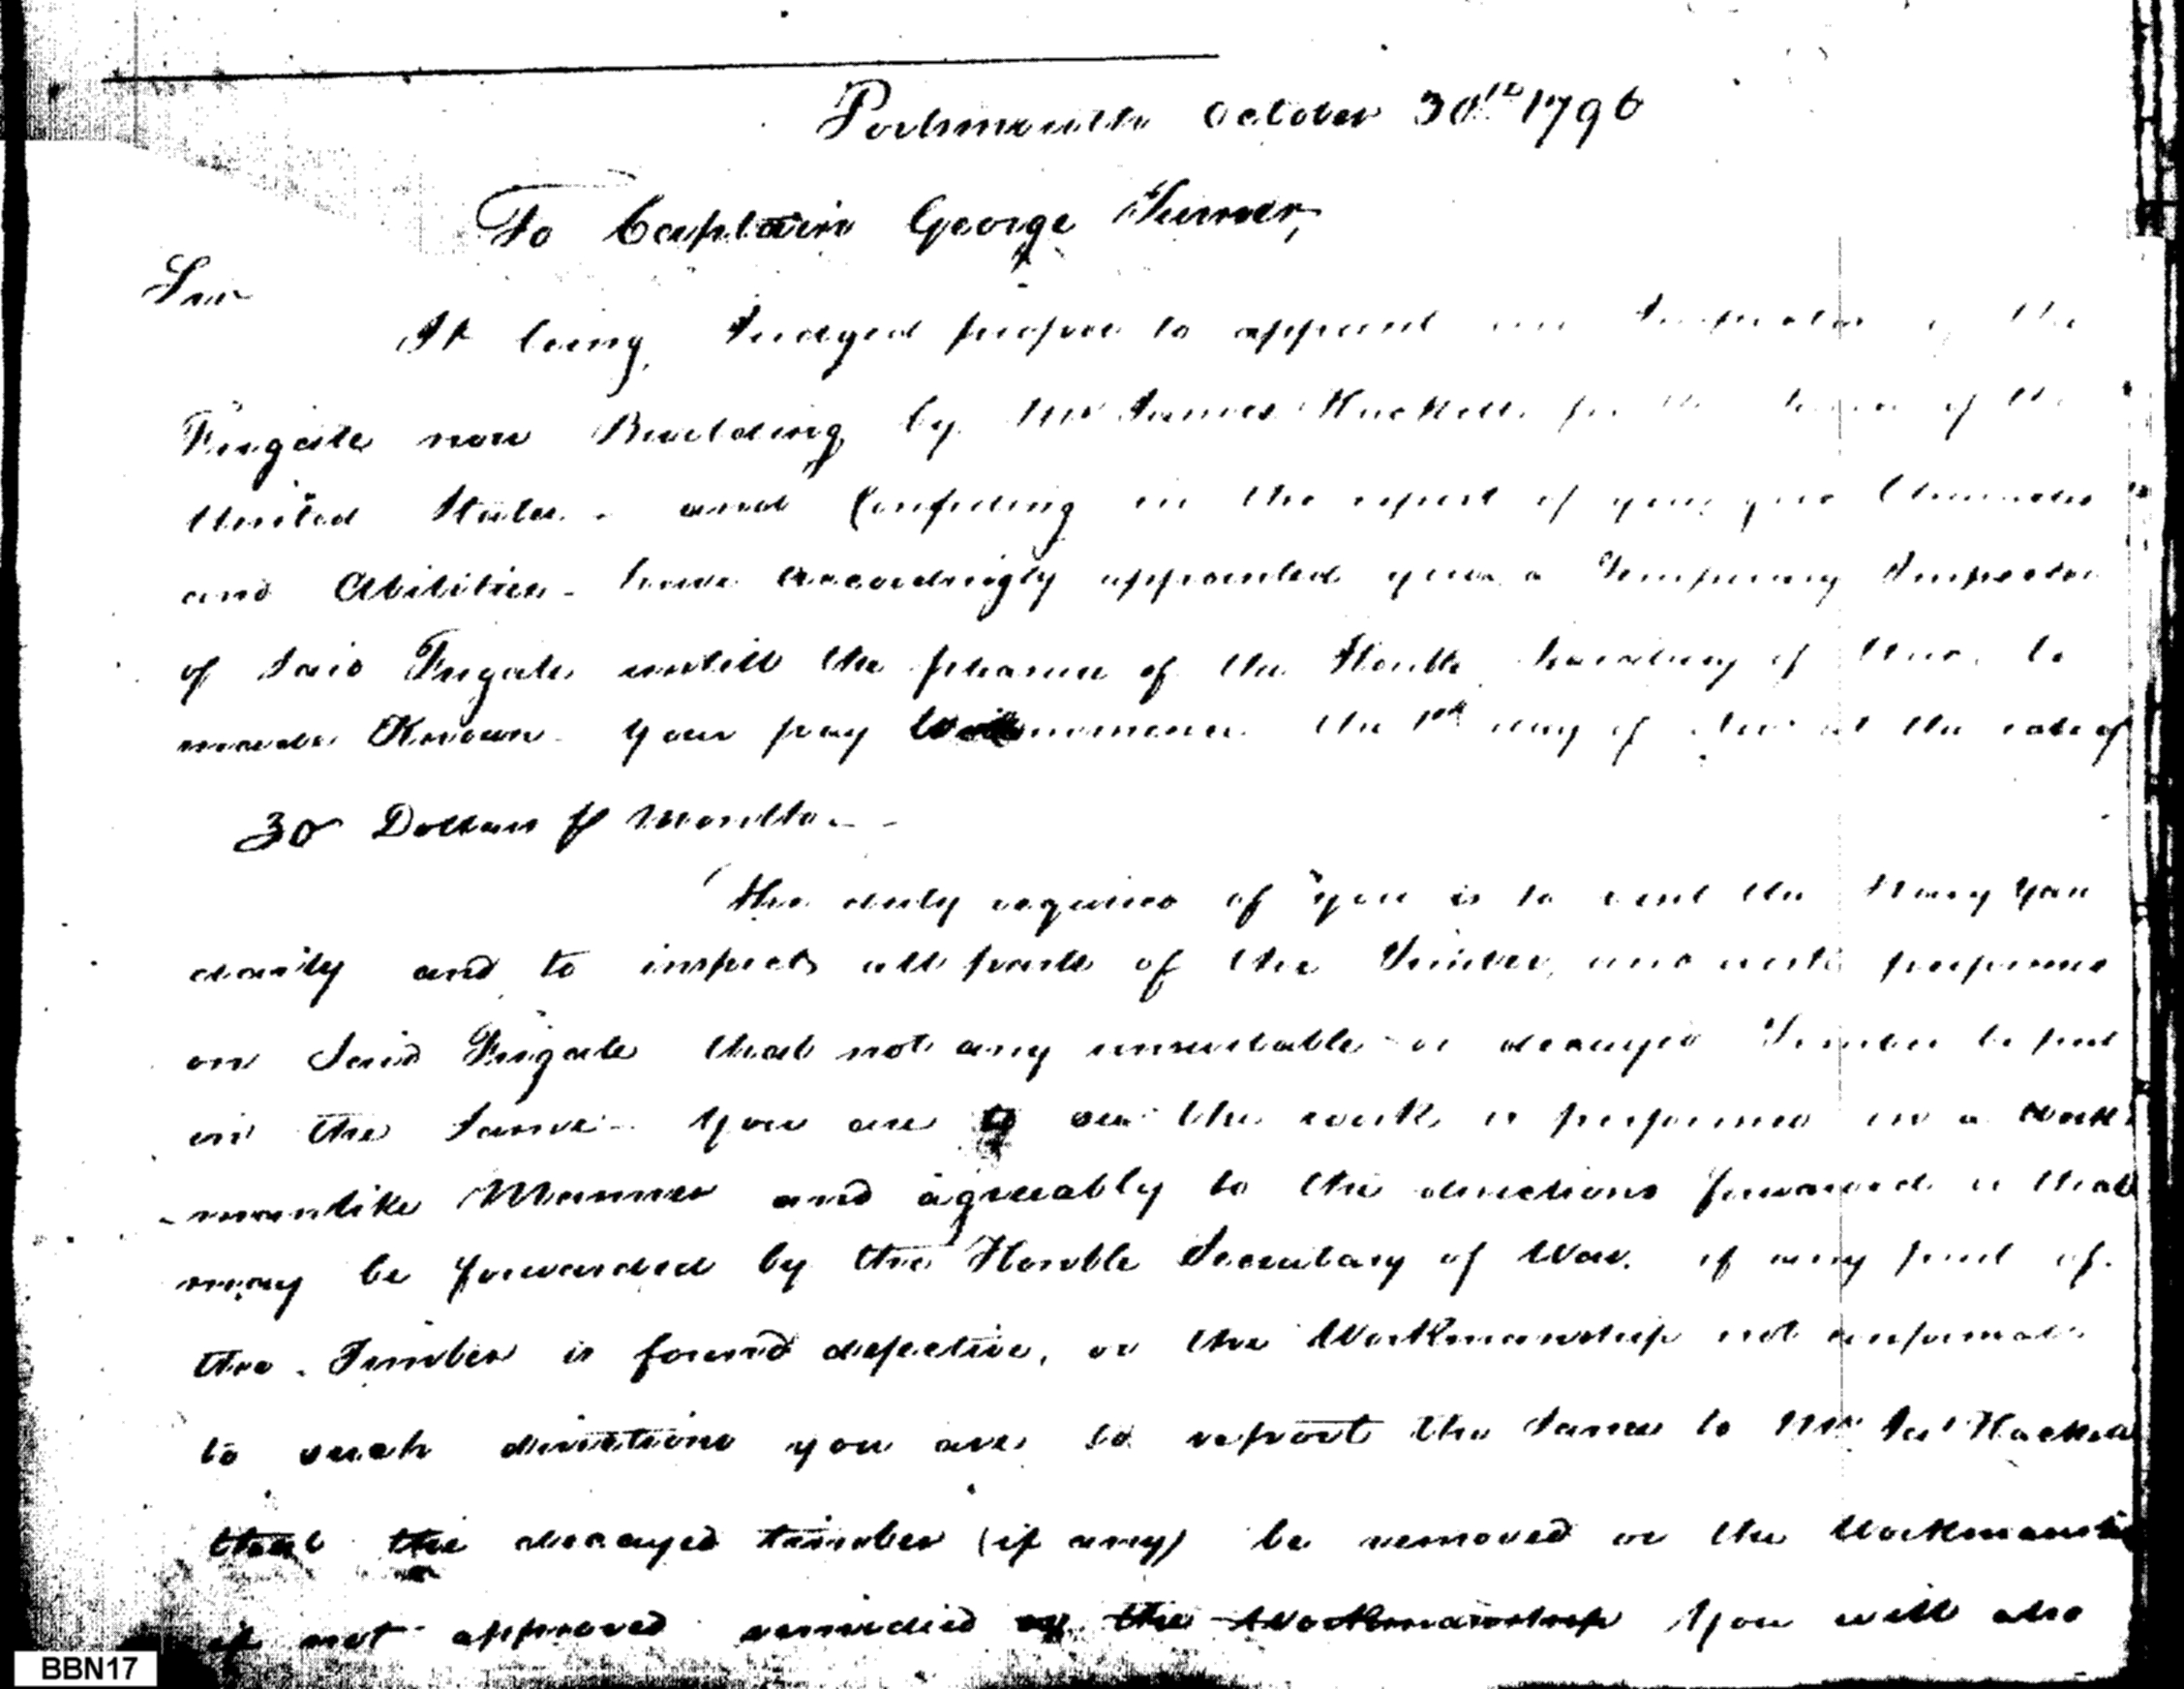 Portsmouth October 30th 1796
To Captain George Turner,
Sir
It being Judged proper to appoint an Inspector of the
Frigate now Building by Mr James Hackett for the of the
United States - and Confiding in the report of your good Character
and Abilities - have Accordingly appointed you a Temporary Inspector
of Said Frigate untill the pleasure of the Honble Secretary of War, be
made Known - your pay Commence the 1st day of at the rate of
30 Dollars ⅌ Month -
The duty required of you is to the Navy Yard
daily and to inspect all parts of the Timber, and work performed
on Said Frigate that not any unsuitable or decayed Timber be put
in the Same - you are to see the work is performed in a Work
-manlike Manner and agreeably to the directions forwarded or that
may be forwarded by the Honble Secretary of War. if any part of
the Timber is found defective, or the Workmanship not conformable
to such directions you are to report the Same to Mr Jas Hackett
that the decayed timber (if any) be removed or the Workmanship
if not approved remidied or the Workmanship You will also
BBN17